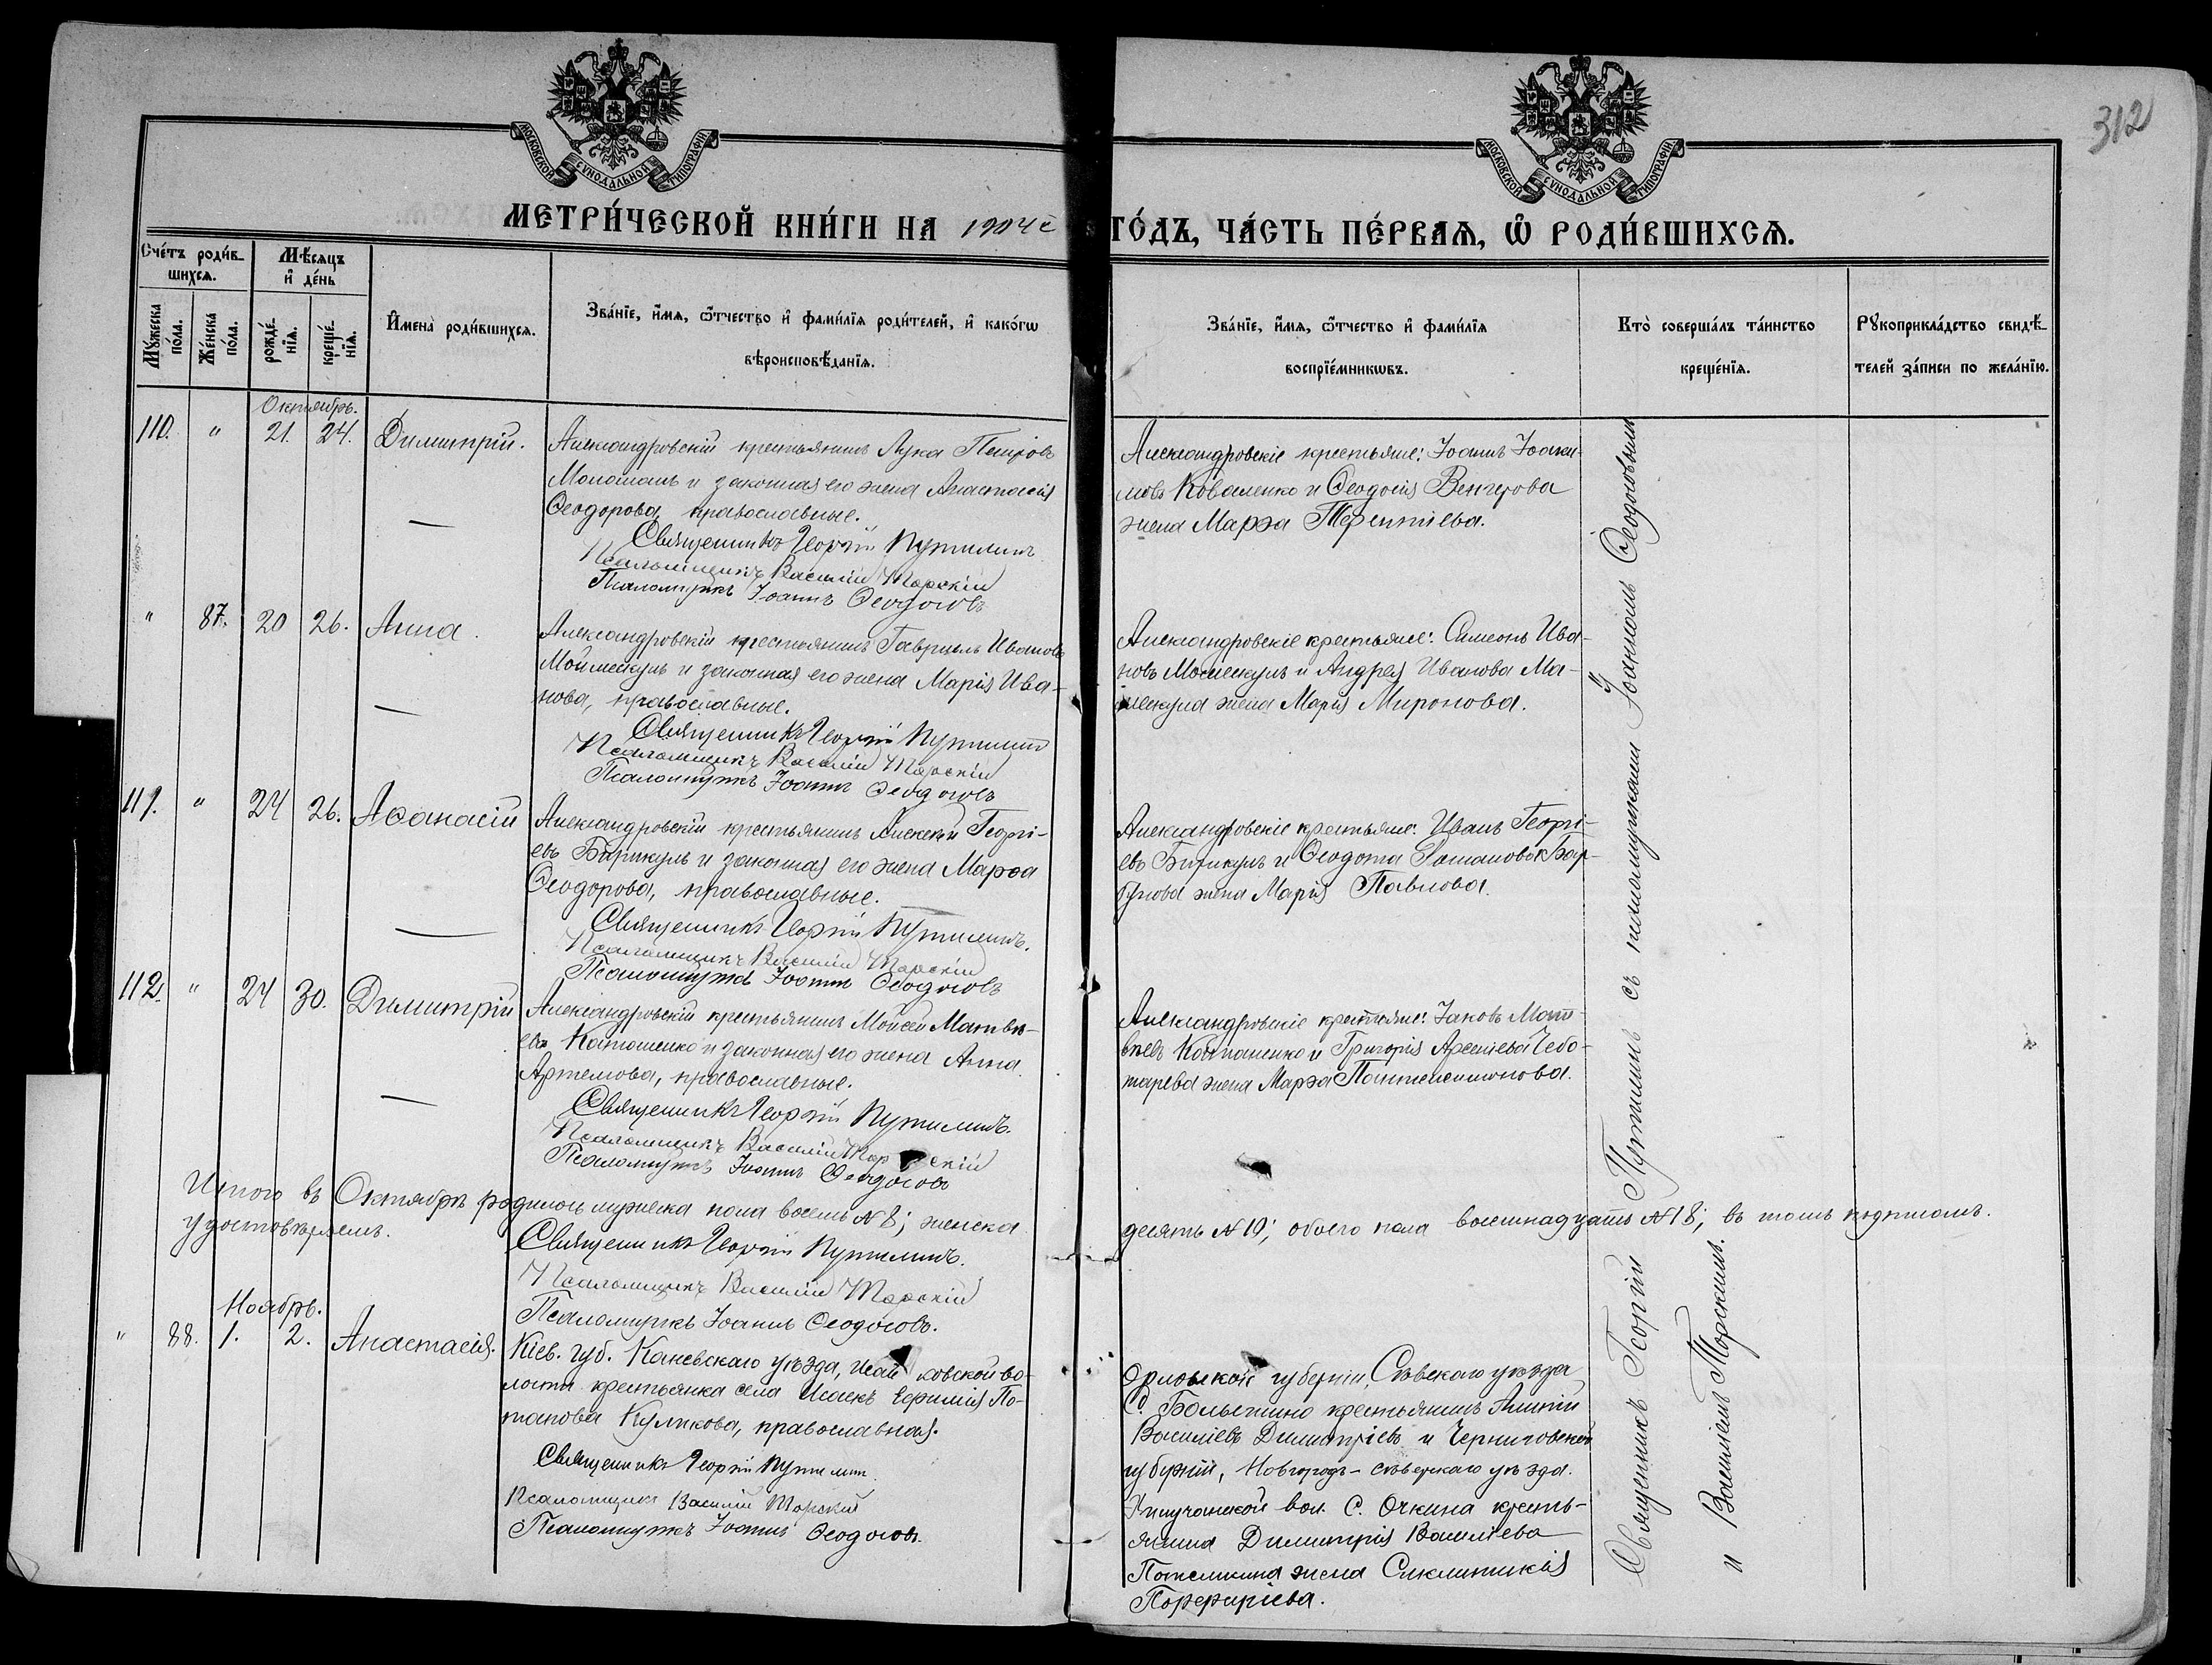 312
МОСКОВСКОЙ СУНОДАЛЬНОЙ ТИПОГРАФІИ
МОСКОВСКОЙ СУНОДАЛЬНОЙ ТИПОГРАФІИ
МЕТРИ́ЧЕСКОЙ КНИ́ГИ НА 1904 ГО́ДЪ, ЧА́СТЬ ПЕ́РВАѦ, Ѡ҆ РОДИ́ВШИХСѦ.
Сче́тъ роди́в-
шихсѧ.
Мѣ́сѧцъ
и҆ де́нь
Мꙋ́жеска
по́ла.
Же́нска
по́ла.
рожде́-
нїѧ.
креще́-
нїѧ.
И҆мена̀ роди́вшихсѧ.
Зва́нїе, и҆́мѧ, ѻ҆́тчество и҆ фами́лїѧ роди́телей, и҆ како́гѡ
вѣроисповѣ́данїѧ.
Зва́нїе, и҆́мѧ, ѻ҆́тчество и҆ фами́лїѧ
воспрїе́мникѡвъ.
Кто̀ соверша́лъ та́инство
креще́нїѧ.
Рꙋкоприкла́дство свидѣ́-
телей за́писи по жела́нїю.
Октябрь.
110. " 21. 24. Димитрій.
Александровскій крестьянинъ Лука Петровъ
и законная его жена Анастасія
Ѳеодорова, православные.
Священникъ Георгій Путилинъ
Псаломщикъ Василій Торскій
Псаломщикъ Іоаннъ Ѳеодосовъ
Александровскіе крестьяне: Іоаннъ Іоаки-
мовъ Коваленко и Ѳеодосія Венгерова
жена Марѳа Терентіева.
" 87. 20 26. Анна.
Александровскій крестьянинъ Гавріилъ Ивановъ
и законная его жена Марія Ива-
нова, православные.
Священникъ Георгій Путилинъ
Псаломщикъ Василій Торскій
Псаломщикъ Іоаннъ Ѳеодосовъ
Александровскіе крестьяне: Симеонъ Ива-
новъ и Андрея Иванова
жена Марія Миронова.
111. " 24 26. Аѳанасій
Александровскій крестьянинъ Алексѣй Георгі-
евъ Бирикулъ и законная его жена Марѳа
Ѳеодорова, православные.
Священникъ Георгій Путилинъ.
Псаломщикъ Василій Торскій
Псаломщикъ Іоаннъ Ѳеодосовъ
Александровскіе крестьяне: Иванъ Георгі-
евъ Бирикулъ и Ѳеодота Романова
жена Марія Павлова.
112. " 24 30. Димитрій
Александровскій крестьянинъ Моисей Матвѣ-
евъ и законная его жена Анна
Артемова, православные.
Священникъ Георгій Путилинъ.
Псаломщикъ Василій Торскій
Псаломщикъ Іоаннъ Ѳеодосовъ
Александровскіе крестьяне: Іаковъ Мат-
вѣевъ и Григорія Арсеніева Чебо-
тарева жена Марѳа Пантелеимонова.
Итого въ Октябрѣ родилось мужеска пола восемь №8; женска десять №10; обоего пола восемнадцать №18; въ томъ подписомъ
удостовѣряемъ.
Священникъ Георгій Путилинъ.
Псаломщикъ Василій Торскій
Псаломщикъ Іоаннъ Ѳеодосовъ.
Ноябрь.
" 88. 1. 2. Анастасія.
Кіев. губ. Каневскаго уѣзда, во-
лости крестьянка села Евфимія По-
тапова Куликова, православная.
Священникъ Георгій Путилин
Псаломщикъ Василій Торскій
Псаломщикъ Іоаннъ Ѳеодосовъ.
Орловской губерніи, Сѣвскаго уѣзда
С. крестьянинъ
Василіевъ Димитріевъ и Черниговской
губерніи, Новгородъ-Сѣверскаго уѣзда.
вол. С. Очкина кресть-
янина Димитрія Василіева
Потемкина жена Синклитикія
Порфиріева.
Священникъ Георгій Путилинъ съ псаломщиками Іоанномъ Ѳеодосовымъ
и Василіемъ Торскимъ.